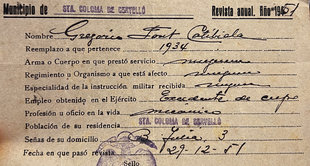 Municipio de STA. COLOMA DE CERVELLÓ Revista anual. Año 1951
Nombre Gregorio Font
Reemplazo a que pertenece 1934
Arma o Cuerpo en que prestó servicio ninguna
Regimiento u Organismo a que está afecto ninguno
Especialidad de la instrucción militar recibida ninguna
Empleo obtenido en el Ejército Excedente de cupo
Profesión u oficio en la vida mecánico
Población de su residencia STA. COLOMA DE CERVELLÓ
Señas de su domicilio Julia, 3
Fecha en que pasó revista 29-12-51
Sello